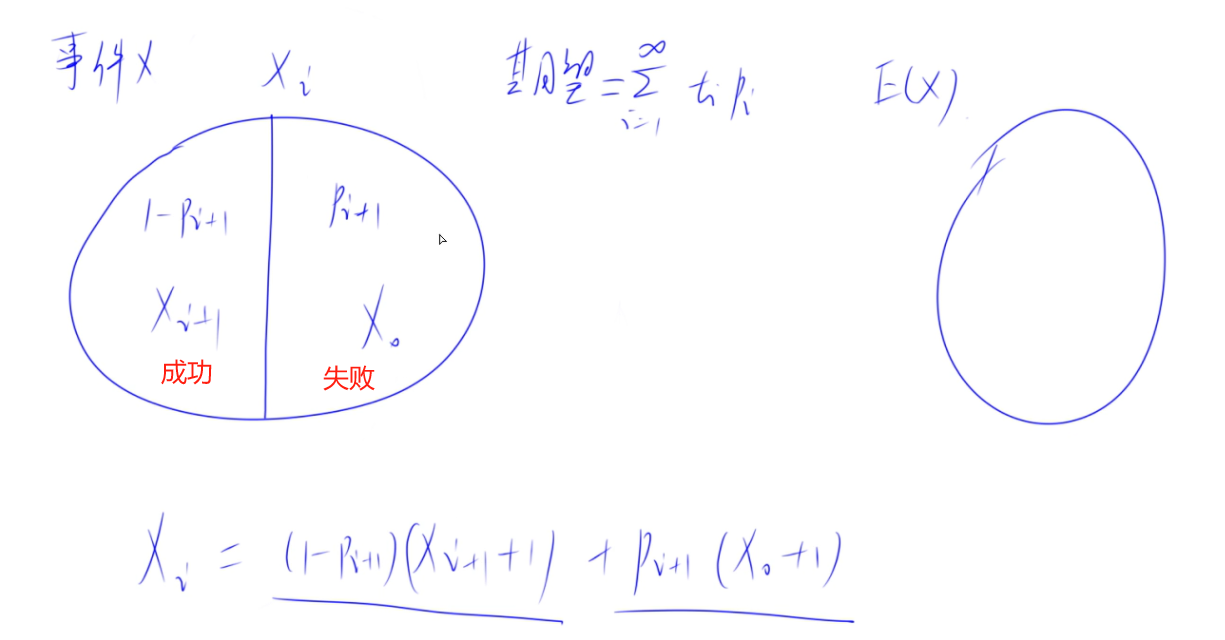 事件X
X_i
期望=∑_{i=1}^{∞} t_i p_i
E(X)
1-p_{i+1}
p_{i+1}
X_{i+1}
X_0
成功
失败
X_i = (1-p_{i+1})(X_{i+1}+1) + p_{i+1}(X_0+1)